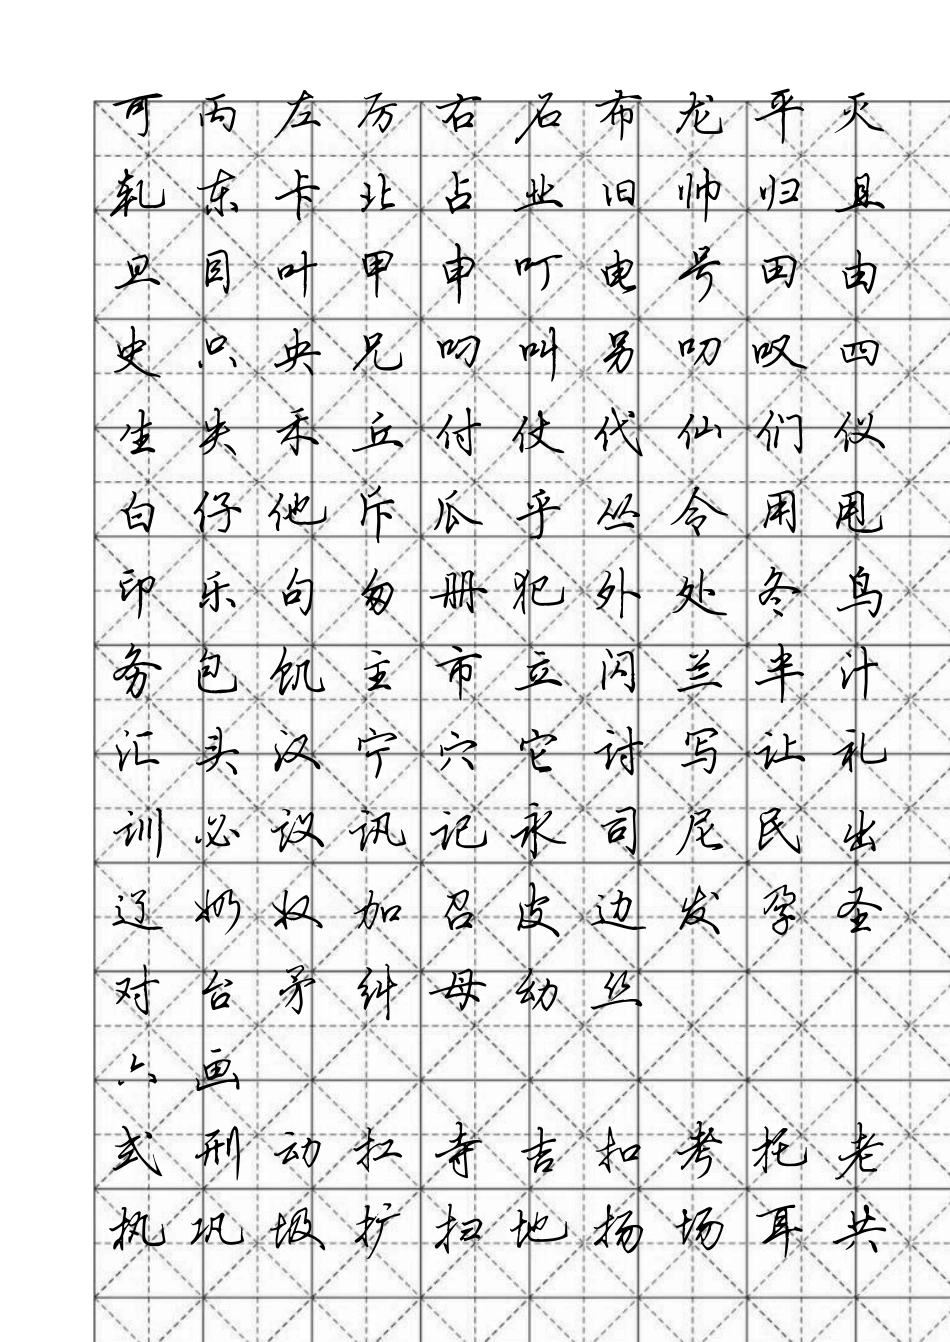 可 丙 左 厉 右 石 布 龙 平 灭
轧 东 卡 北 占 业 旧 帅 归 且
旦 目 叶 甲 申 叮 电 号 田 由
史 只 央 兄 叼 叫 另 叨 叹 四
生 失 禾 丘 付 仗 代 仙 们 仪
白 仔 他 斥 瓜 乎 丛 令 用 甩
印 乐 句 匆 册 犯 外 处 冬 鸟
务 包 饥 主 市 立 闪 兰 半 汁
汇 头 汉 宁 穴 它 讨 写 让 礼
训 必 议 讯 记 永 司 尼 民 出
辽 奶 奴 加 召 皮 边 发 孕 圣
对 台 矛 纠 母 幼 丝
六 画
式 刑 动 扛 寺 吉 扣 考 托 老
执 巩 圾 扩 扫 地 扬 场 耳 共